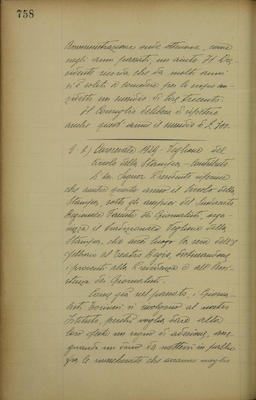 758
Amministrazione onde ottenere, come
negli anni passati, un aiuto. Il Pre-
sidente ricorda che da molti anni
si è soliti di concedere per lo scopo an-
zidetto un sussidio di lire trecento.
Il Consiglio delibera di ripetere
anche quest'anno il sussidio di L. 300.
Carnevale 1924 - Veglione del
Circolo della Stampa - Contributo
Il Signor Presidente informa
che anche quest'anno il Circolo della
Stampa, sotto gli auspici del Sindacato
Regionale dei Giornalisti,
il Veglione della
Stampa, che avrà luogo la sera dell'
febbraio al Teatro Regio, destinandone
i proventi alla Previdenza e all'Assi-
stenza dei Giornalisti.
Come già nel passato, i Giorna-
listi Torinesi si rivolgono al nostro
Istituto, perché voglia dare alla
loro festa un segno di adesione,
quando un dono da mettersi in palio
fra le mascherate che saranno meglio